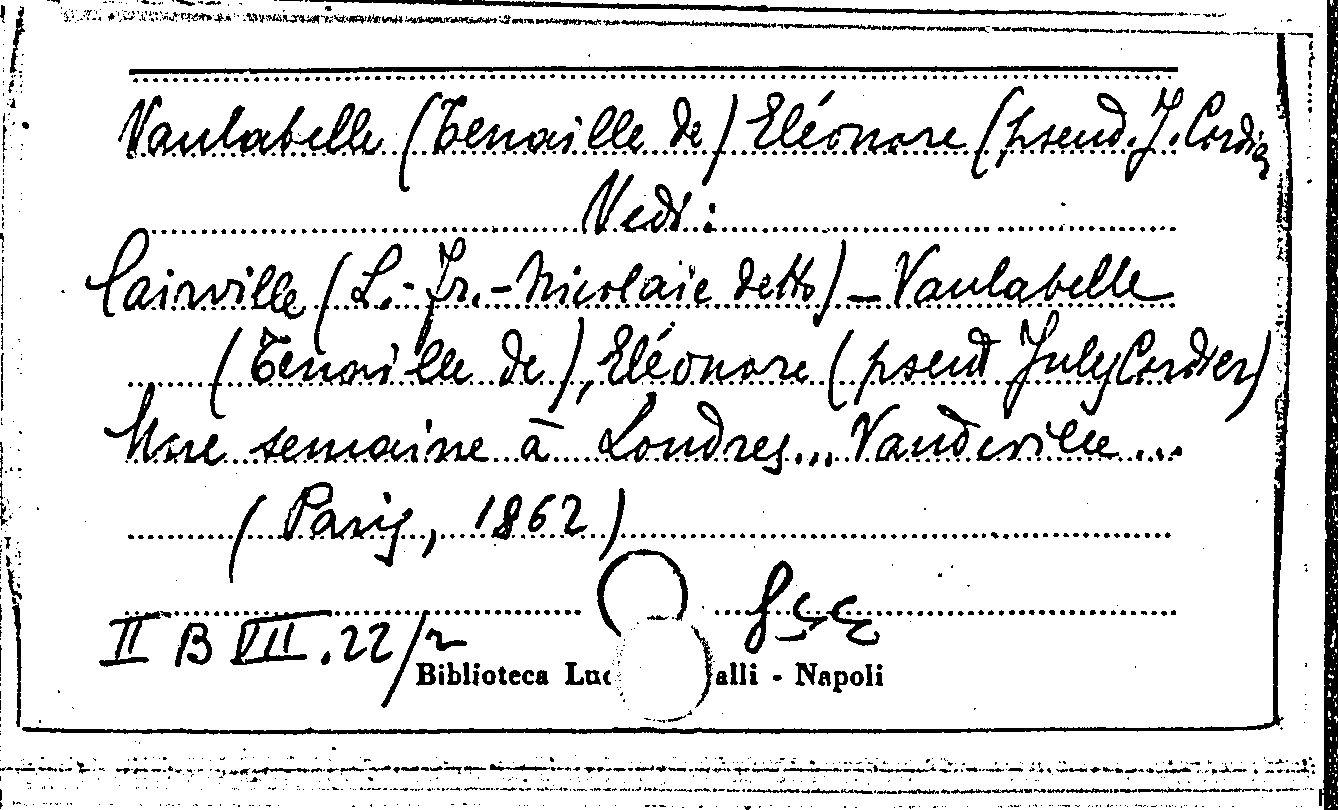 Vaulabelle (Tenaille de) Eléonore (pseud. J. Cordier
Vedi:
Clairville (L.-Fr.-Nicolaïe detto) – Vaulabelle
(Tenaille de), Eléonore (pseud July Cordier)
Une semaine à Londres... Vaudeville...
(Paris, 1862)
II B VII. 22/2
Biblioteca Luc alli - Napoli